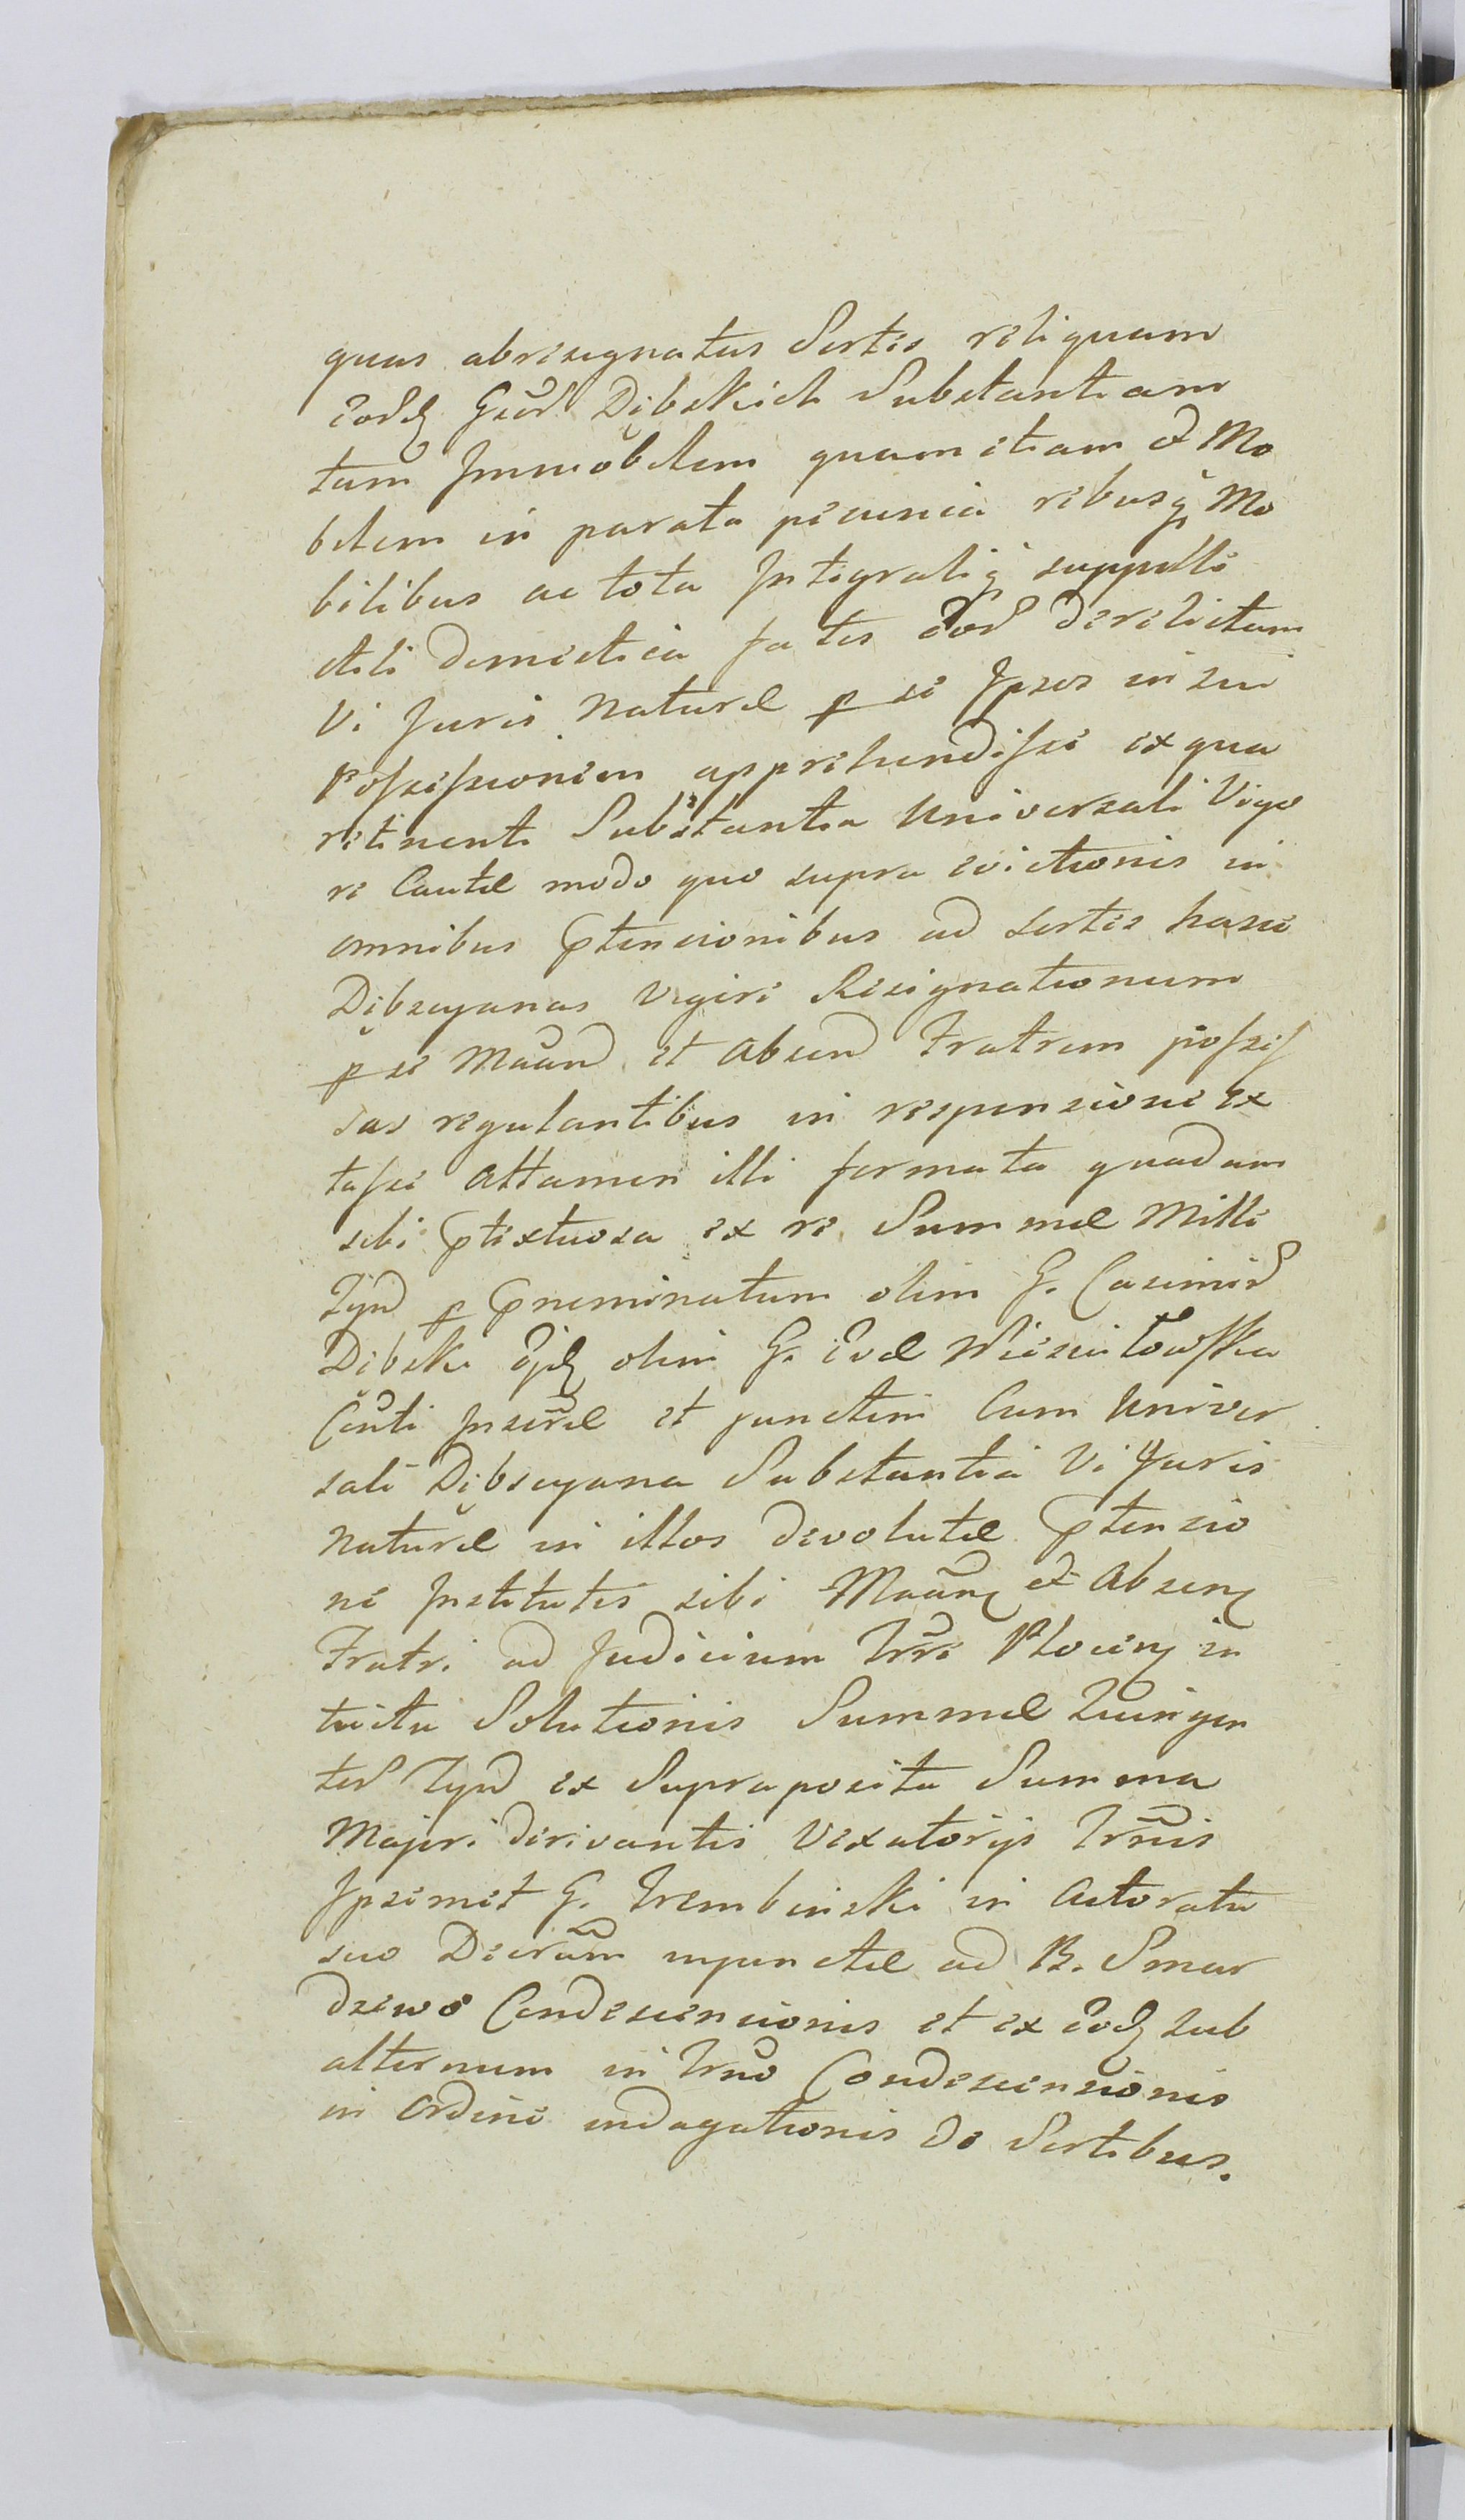 quas abresignatas Sortes reliquam
Eord Gsor Dębskich Substantiam
tum Immobilem quam etiam et Mo
bilem in parata pecunia rebusq Mo
bilibus ac tota Integraliq suppelle
ctili domestica fatis Eor derelictam
Vi Juris Naturæ p se Ipsos in sui
Possessionem apprehendisse ex qua
retinenti Substantia Universali Vigo
re Cautæ modo quo supra evictionis in
omnibus ptensionibus ad Sortes hasce
Dębscyanas Vigore Resignationum
p se Mand et Absen Fratrem posses
sas regulantibus in responsione ex
tasse Attamen illi formata quadam
sibi ptextuosa ex re Summæ Mille
Tynf p pnominatum olim G. Casimir
Dębski Ejd olim G. Evæ Wiesiułowska
Conti Inseræ et punctim Cum Univer
sali Dębscyana Substantia Vi Juris
Naturæ in illos devolutæ ptensio
ne Institutis sibi Maan et Absen
Fratri ad Judicium Trre Plocen in
tuitu Solutionis Summæ Quingen
tor Tynf ex Supraposita Summa
Majori derivantis Vexatorijs Trnis
Ipsemet G. Trembinski in Actoratu
suo Decram injunctæ ad B. Smar
dzewo Condescensionis et ex Eod sub
alternum in Trno Condescensionis
in Ordine indagationis de Sortibus.